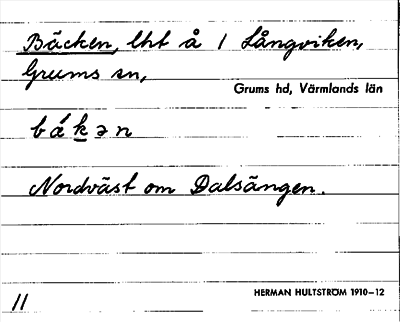 Bäcken, lht å 1 Långviken,
Grums sn,
Grums hd, Värmlands län
bákən
Nordväst om Dalsängen.
11
HERMAN HULTSTRÖM 1910–12